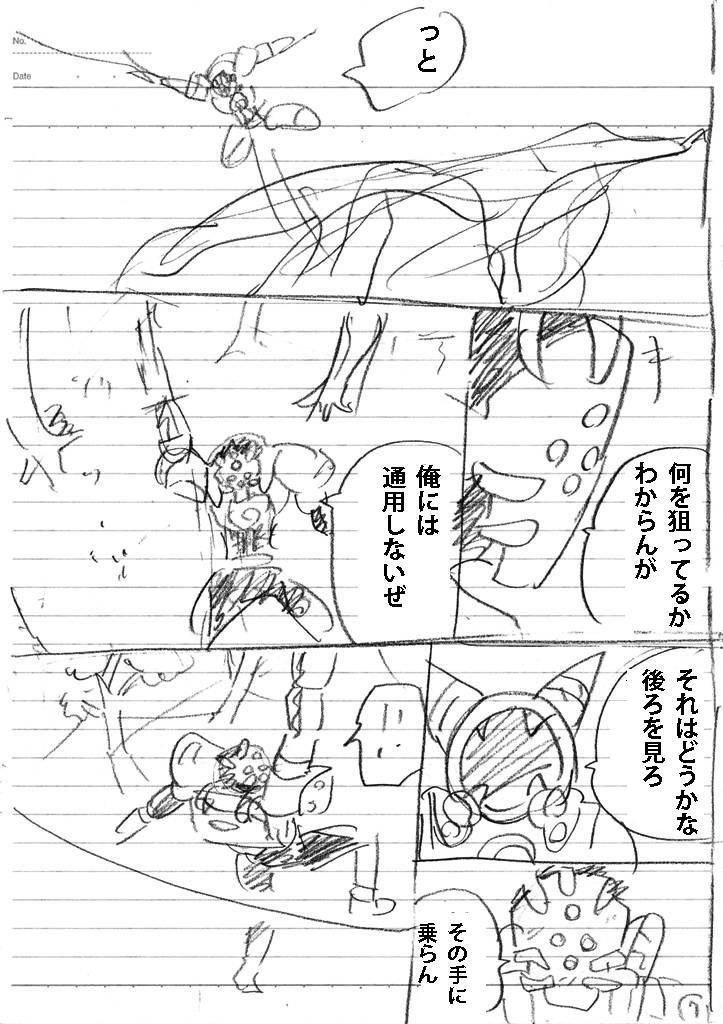 No.
Date
っと
何を狙ってるか
わからんが
俺には
通用しないぜ
それはどうかな
後ろを見ろ
!!
その手に
乗らん